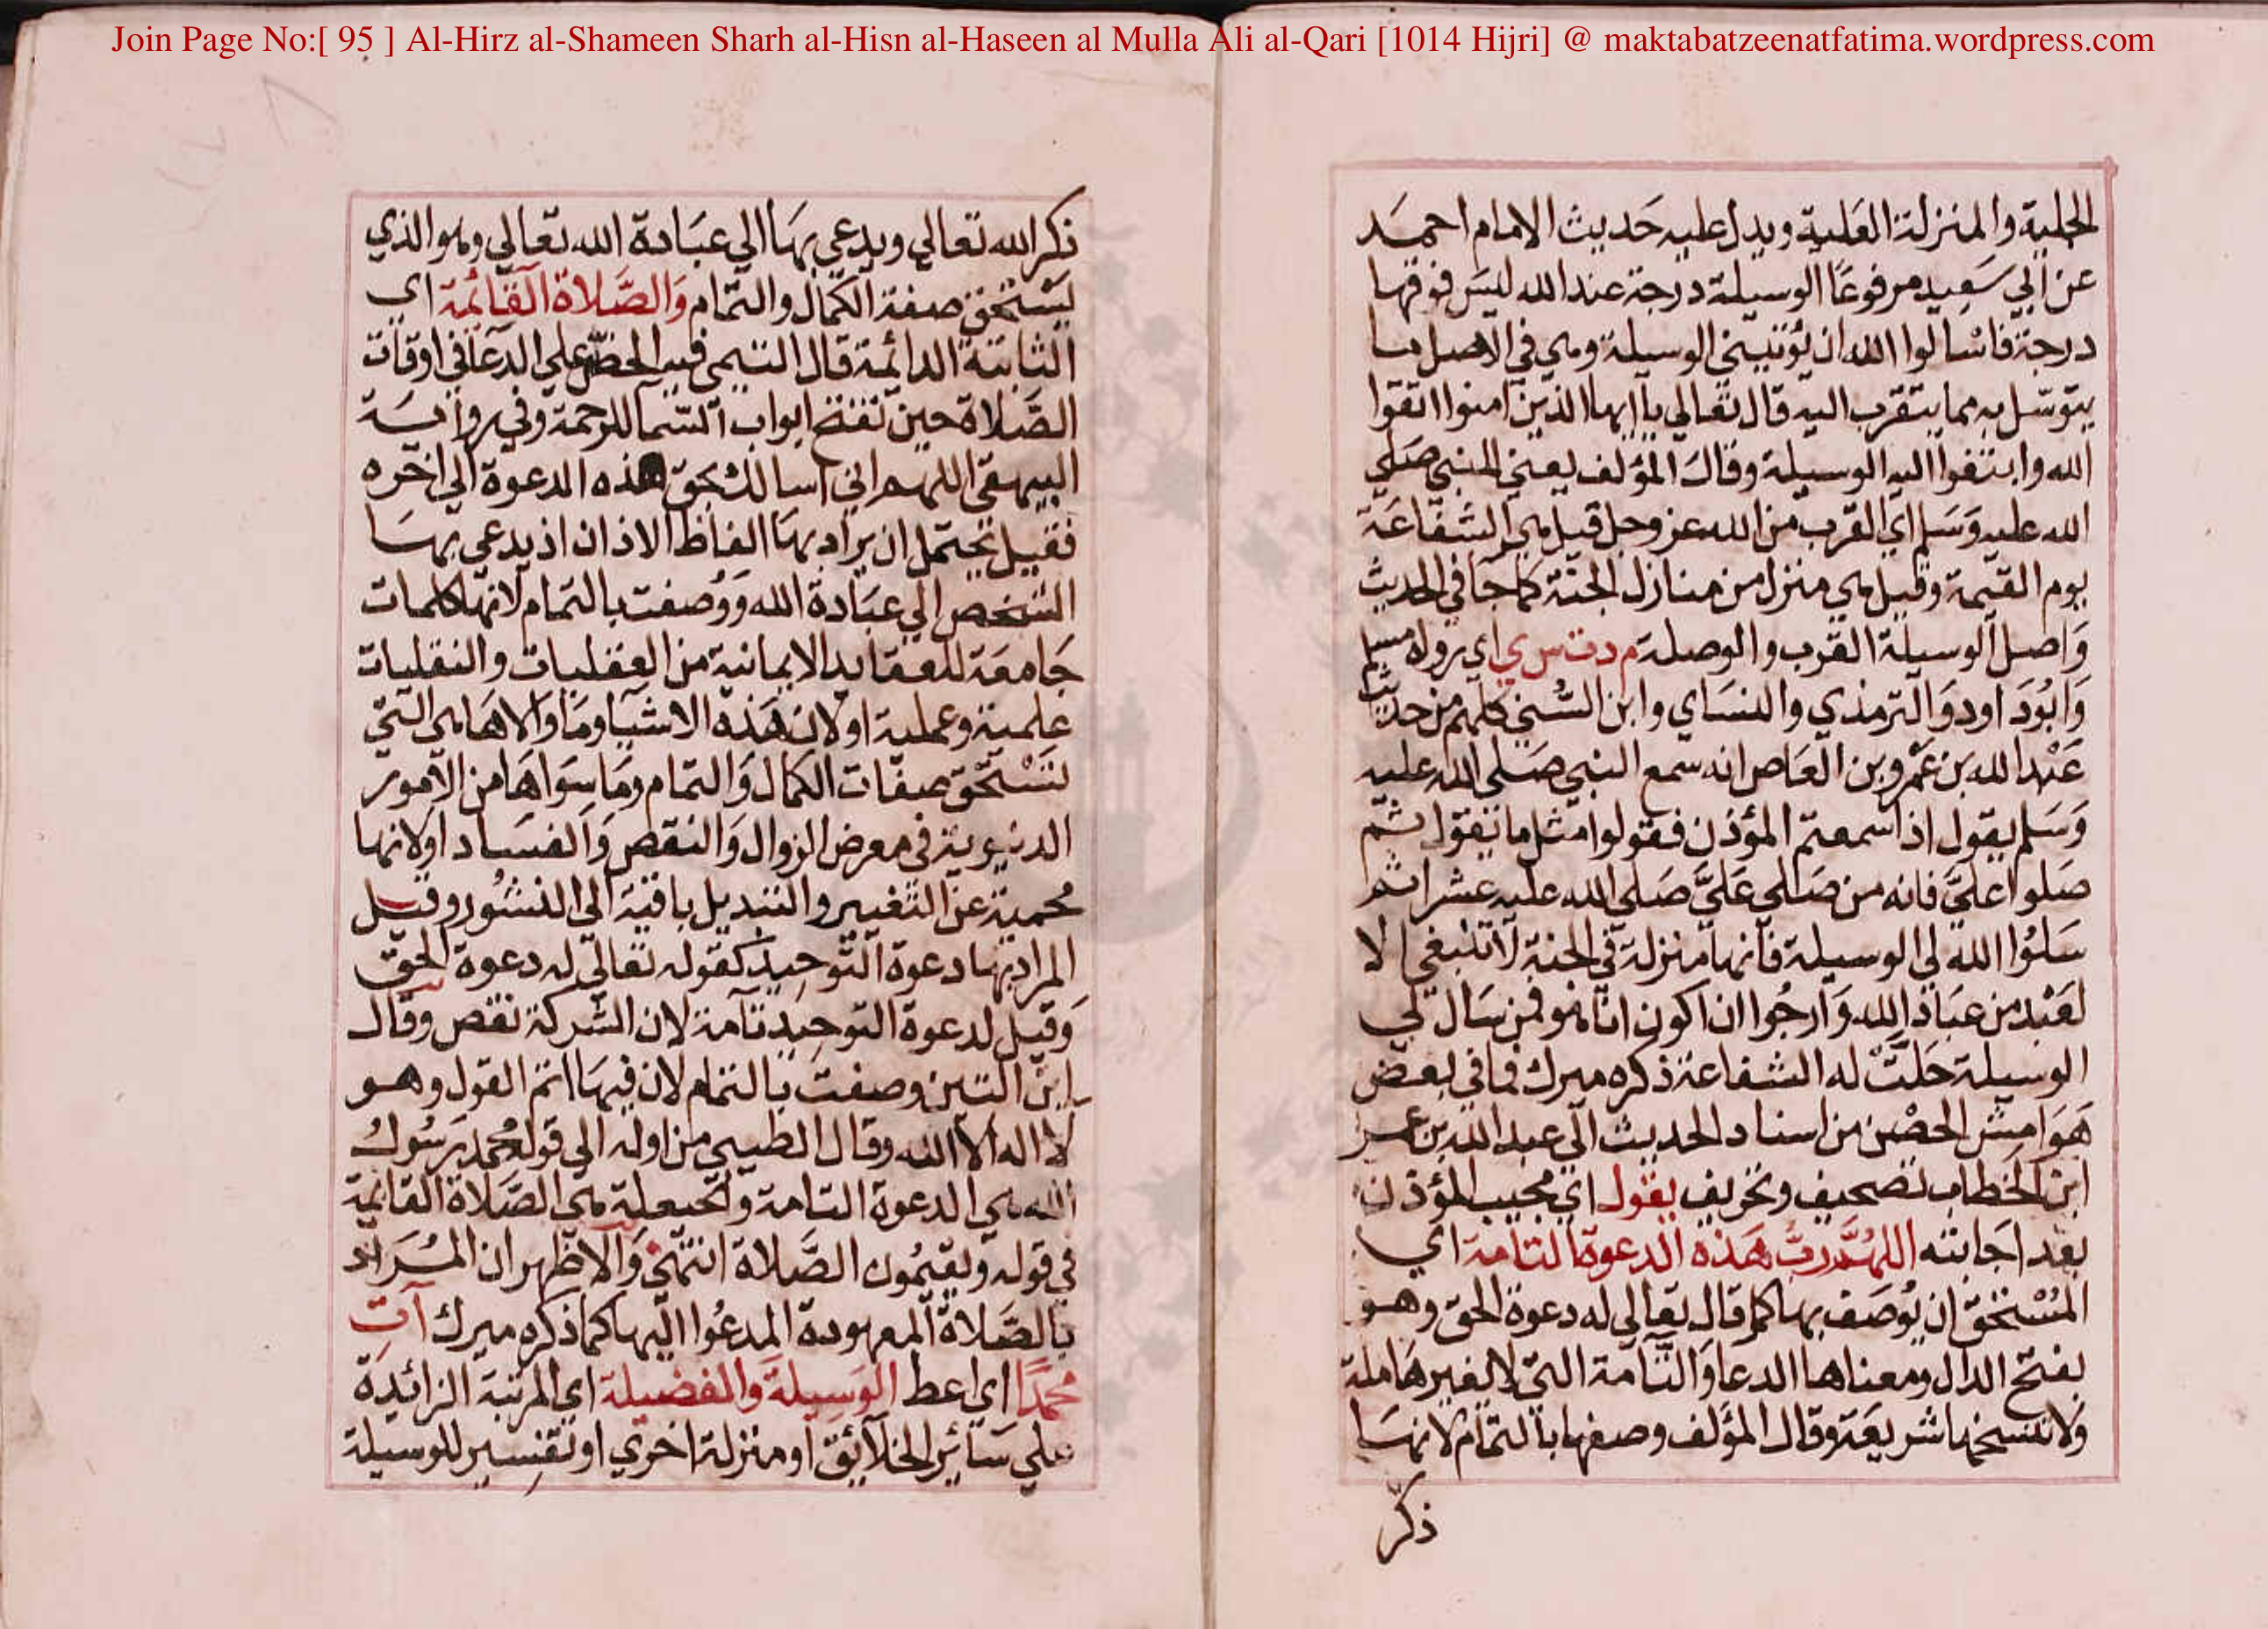 Join Page No:[ 95 ] Al-Hirz al-Shameen Sharh al-Hisn al-Haseen al Mulla Ali al-Qari [1014 Hijri] @ maktabatzeenatfatima.wordpress.com
الجلية والمنزلة العلية ويدل عليه حديث الامام احمد
عن ابي سعيد مرفوعا الوسيلة درجة عند الله ليس فوقها
درجة فاسالوا الله ان يؤتيني الوسيلة وهي في الاصل ما
يتوسل به مما يتقرب اليه قال تعالى يا ايها الذين امنوا اتقوا
الله وابتغوا اليه الوسيلة وقال المؤلف يعني النبي صلي
الله عليه وسلم اي القرب من الله عز وجل قيل هي الشفاعة
يوم القيمة وقيل هي منزل من منازل الجنة كما جا في الحديث
واصل الوسيلة القرب والوصلة م د ت س ي اي رواه مسلم
وابود اود والترمذي والنساي وابن السني كلهم من حديث
عبد الله بن عمرو بن العاص انه سمع النبي صلى الله عليه
وسلم يقول اذا سمعتم المؤذن فقولوا مثل ما نقول ثم
صلوا علي فانه من صلى علي صلى الله عليه عشرا ثم
سلوا الله لي الوسيلة فانها منزلة في الجنة لا تنبغي الا
لعبد من عباد الله وارجوا ان اكون انا هو فمن سال لي
الوسيلة حلت له الشفاعة ذكره ميرك فما في بعض
هوامش الحصن من اسناد الحديث الي عبد الله بن عمر
ابن الخطاب تصحيف وتحريف يقول اي مجيب المؤذن
بعد اجابته اللهم رب هذه الدعوة التامة اي
المستحق ان يوصف بها كما قال تعالى له دعوة الحق وهو
بفتح الدال ومعناها الدعا والتامة التي لا لغيرها ملة
ولا تنسخها شريعة وقال المؤلف وصفها بالتمام لانها
ذكر
ذكر الله تعالى ويدعى بها الي عبادة الله تعالى وهو الذي
يستحق صفة الكمال والتمام والصلاة القائمة اي
الثابتة الدائمة قال التيمي فيه الحض علي الدعا في اوقات
الصلاة حين تفتح ابواب السما للرحمة وفي رواية
البيهقي اللهم اني اسالك بحق هذه الدعوة الي اخره
فقيل يحتمل ان يراد بها الفاظ الاذان اذ يدعى بها
الشخص الي عبادة الله ووصفت بالتمام لانها كلمات
جامعة للعقايد الايمانية من العقليات والنقليات
علمية وعملية اولان هذه الاشيا وما والاها هي التي
تستحق صفات الكمال والتمام وما سواها من الامور
الدنيوية في معرض الزوال والنقص والفساد اولانها
محمية عن التغيير والتبديل باقية الي النشور وقيل
المراد بها دعوة التوحيد كقوله تعالي له دعوة الحق
وقيل لدعوة التوحيد تامة لان الشركة نقص وقال
ابن التين وصفت بالتمام لان فيها اتم القول وهو
لا اله الا الله وقال الطيبي من اوله الي قوله محمد رسول
الله هي الدعوة التامة والحيعلة هي الصلاة القائمة
في قوله ويقيمون الصلاة انتهى والاظهر ان المراد
بالصلاة المعهودة المدعوا اليها كما ذكره ميرك آت
محمدا اي اعط الوسيلة والفضيلة اي المرتبة الزائدة
علي سائر الخلائق او منزلة اخري او تفسير للوسيلة